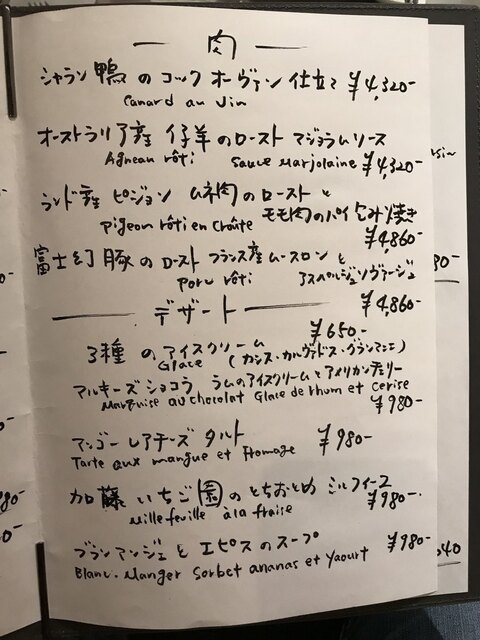 肉
シャラン鴨のコックオーヴァン仕立て ¥4,320-
Canard au vin
オーストラリア産 仔羊のロースト マジョラムソース
Agneau rôti sauce marjolaine ¥4,320-
ランド産 ピジョン ムネ肉のローストと
Pigeon rôti en croûte モモ肉のパイ包み焼き
¥4,860-
富士幻豚のロースト フランス産ムースロンと
Porc rôti アスペルジュソヴァージュ
¥4,860-
デザート
¥650-
3種のアイスクリーム
Glace (カシス・カルヴァドス・グランマニエ)
マルキーズショコラ ラムのアイスクリームとアメリカンチェリー
Marquise au chocolat Glace de rhum et cerise
¥980-
マンゴーレアチーズタルト ¥980-
Tarte aux mangue et fromage
加藤いちご園のとちおとめ ミルフィーユ
¥980-
Mille feuille à la fraise
ブランマンジェとエピスのスープ ¥980-
Blanc-Manger Sorbet ananas et Yaourt